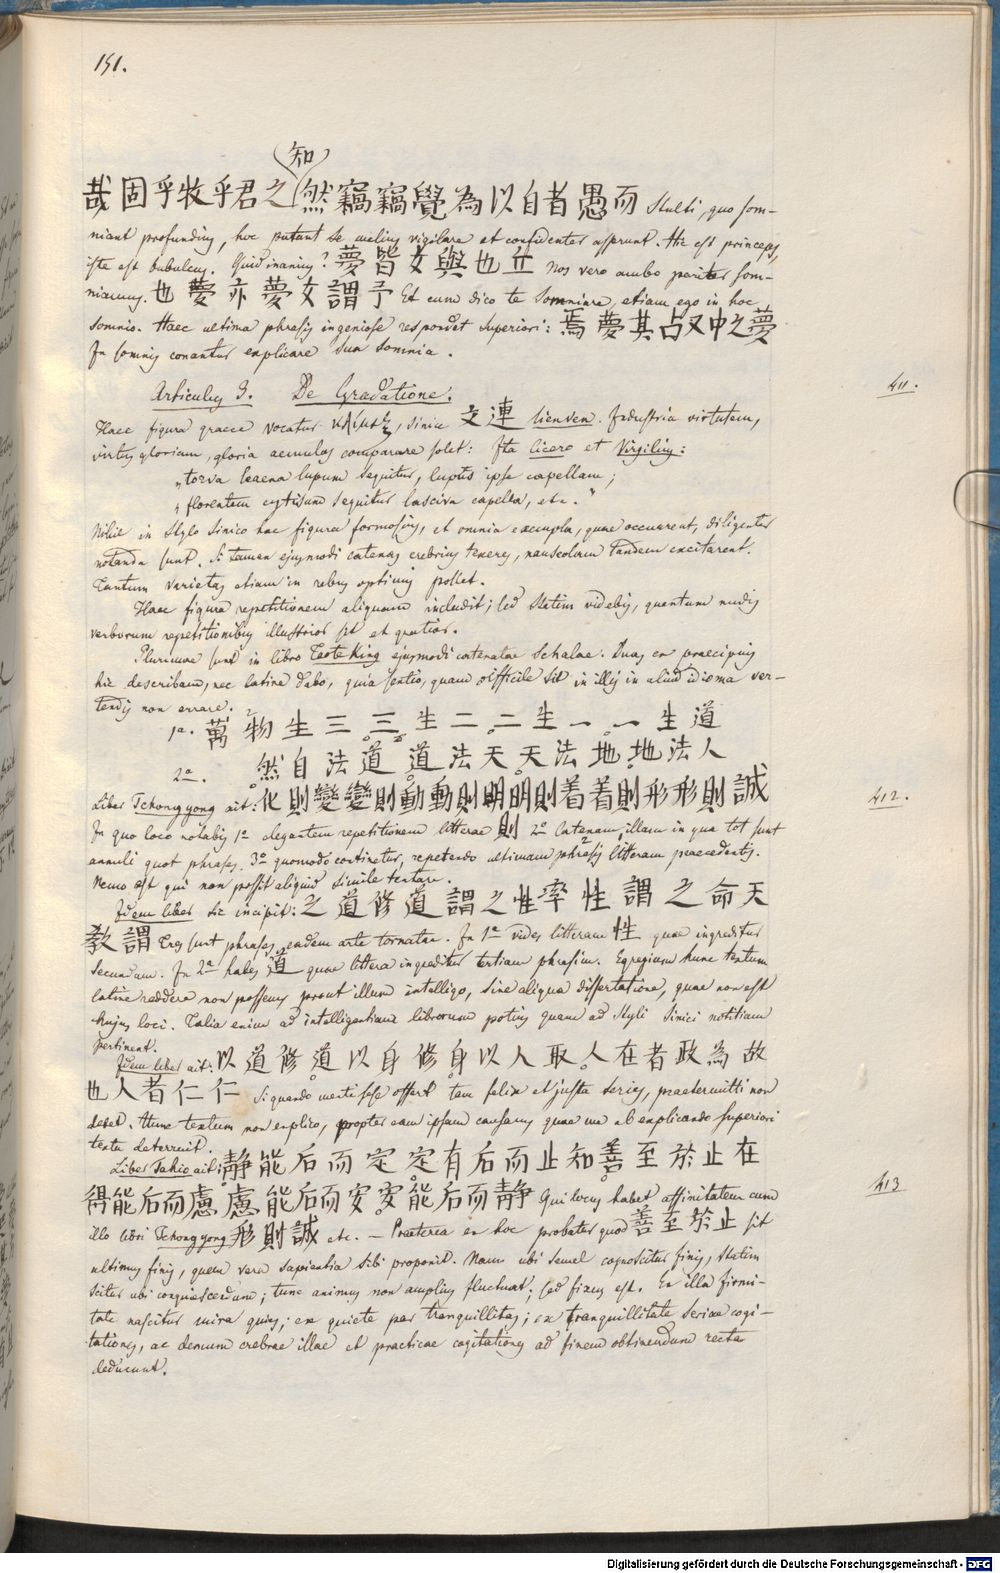 151.
知
哉固乎牧乎君之然竊竊覺為以自者愚而 Stulti, quo som-
niant profundius, hoc putant se melius vigilare et confidenter asserunt. Hic est princeps,
iste est bubulcus. Quid inanius? 夢皆女與也丘 Nos vero ambo pariter som-
niamus. 也夢亦夢女謂予 Et cum dico te somniare, etiam ego in hoc
somnio. Haec ultima phrasis ingeniose respondet superiori: 焉夢其占又中之夢
In somnis conantur explicare sua somnia.
Articulus 3. De Gradatione.
411.
Haec figura graece vocatur , sinice 文連 lienven. Industria virtutem,
virtus gloriam, gloria aemulos comparare solet: Ita Cicero et Virgilius:
„torva leaena lupum sequitur, lupus ipse capellam;
„florentem cytisum sequitur lasciva capella, etc."
Nihil in Stylo Sinico hac figura formosius, et omnia exempla, quae occurrent, diligenter
notanda sunt. Si tamen ejusmodi catenas crebrius texeres, nauseolam tandem excitarent.
Tantum varietas etiam in rebus optimis pollet.
Haec figura repetitionem aliquam includit; sed statim videbis, quantum nudis
verborum repetitionibus illustrior sit et gratior.
Plurimae sunt in libro Taoteking ejusmodi catenatae Schalae. Duas ex praecipuis
hic describam, nec latine dabo, quia sentio, quam difficile sit in illis in aliud idioma ver-
tendis non errare.
1a. 萬物生三三生二二生一一生道
2a. 然自法道道法天天法地地法人
412.
Liber Tchongyong ait: 化則變變則動動則明明則着着則形形則誠
In quo loco notabis 1o elegantem repetitionem litterae 則 2o Catenam illam in qua tot sunt
annuli quot phrases. 3o quomodo continetur, repetendo ultimam phrasis litteram praecedentis.
Nemo est qui non possit aliquid simile tentare.
Idem liber sic incipit: 之道修道謂之性率性謂之命天
教謂 Tres sunt phrases eadem arte tornatae. In 1a vides litteram 性 quae ingreditur
secundam. In 2a habes 道 quae littera ingreditur tertiam phrasim. Egregium hunc textum
latine reddere non possem prout illum intelligo, sine aliqua dissertatione, quae non est
hujus loci. Talia enim ad intelligentiam librorum potius quam ad Styli Sinici notitiam
pertinent.
Idem liber ait: 以道修道以身修身以人取人在者政為故
也人者仁仁 Si quando menti sese offert tam felix et justa series, praetermitti non
debet. Hunc textum non explico, propter eam ipsam causam, quae me ab explicando superiori
textu deterruit.
413
Liber Tahio ait: 静能后而定定有后而止知善至於止在
得能后而慮慮能后而安安能后而静 Qui locus habet affinitatem cum
illo libri Tchongyong 形則誠 etc. — Praeterea ex hoc probatur quod 善至於止 sit
ultimus finis, quem vera sapientia sibi proponit. Nam ubi semel cognoscitur finis, statim
scitur ubi conquiescendum; tunc animus non amplius fluctuat, sed fixus est. Ex illa firmi-
tate nascitur mira quies; ex quiete par tranquillitas; ex tranquillitate seriae cogi-
tationes, ac demum crebrae illae et practicae cogitationes ad finem obtinendum recta
deducunt.
Digitalisierung gefördert durch die Deutsche Forschungsgemeinschaft - DFG